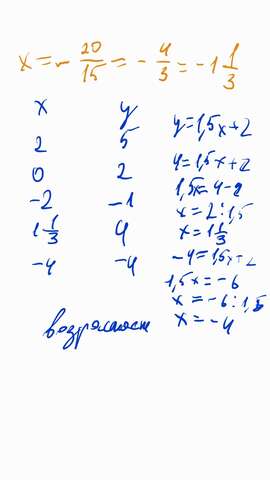 x = - 20/15 = - 4/3 = -1 1/3
x y
2 5
0 2
-2 -1
1 1/3 4
-4 -4
y = 1,5x + 2
4 = 1,5x + 2
1,5x = 4 - 2
x = 2 : 1,5
x = 1 1/3
-4 = 1,5x + 2
1,5x = -6
x = -6 : 1,5
x = -4